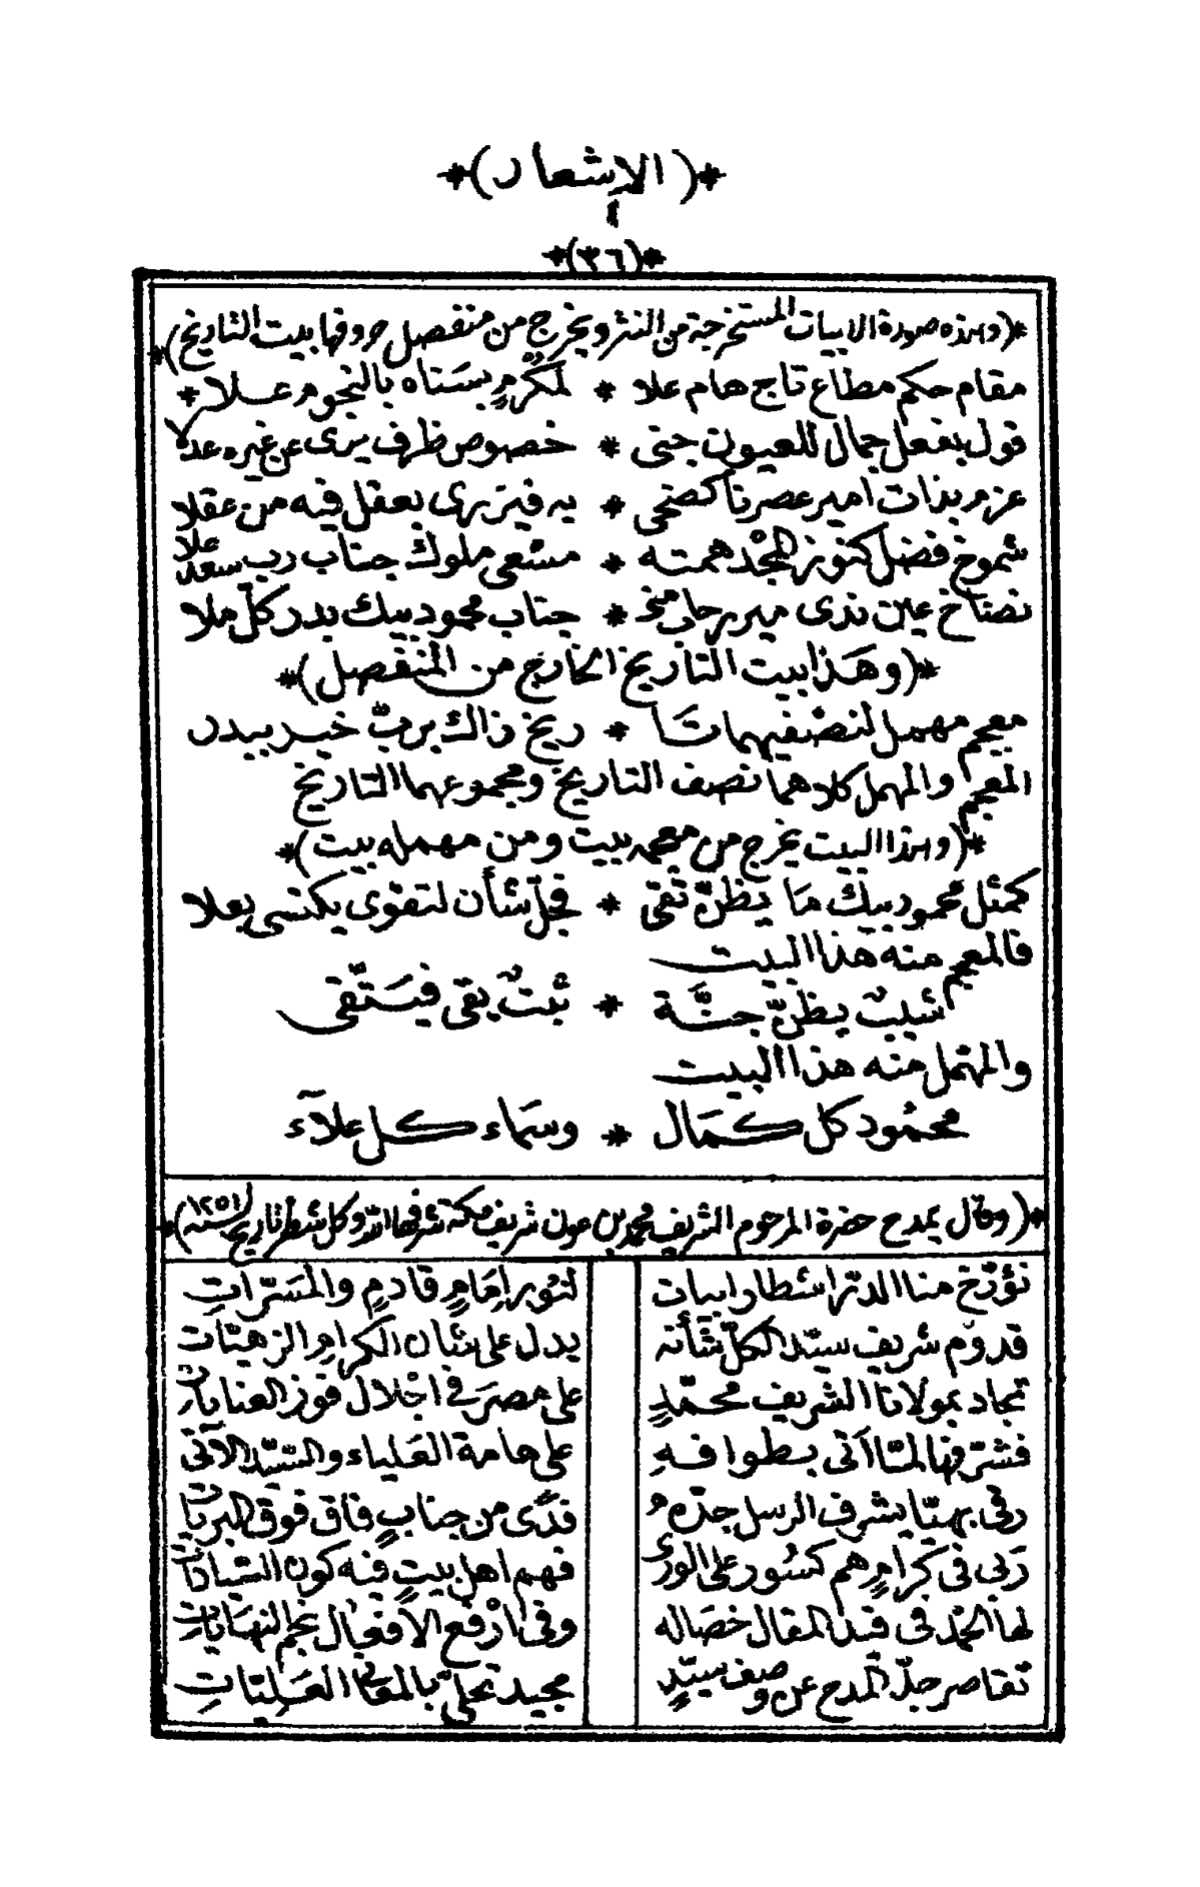 *( الإشعار )*
*(٣٦)*
*(وهذه صورة الابيات المستخرجة من النثر ويخرج من منفصل حروفها بيت التاريخ)*
مقام حكم مطاع تاج هام علا * لمكرم بسناه بالنجوم عــلا *
قول بفعل جمال للعيون جنى * خصوص ظرف يرى عن غيره عدلا
عزم بذات امير عصرنا كضحى * به فيتزهى بعقل فيه من عقلا
شموخ فضل كنوز المجد همته * مسعى ملوك جناب رب سعد علا
نضاخ عين ندى مير رحامخ * جناب محمود بيك بدر كلّ ملا
*(وهَذا بيت التاريخ الخارج من المنفصل)*
معجم مهمل لنصفيهما تَا * ريخ ذاك بربّ خيــر بيدر
المعجم والمهمل كلاهما نصف التاريخ ومجموعهما التاريخ
*(وهذا البيت يخرج من معجمه بيت ومن مهمله بيت)*
كمثل محمود بيك مَا يظنّ تقى * فجلّ شأن لتقوى يكتسى بعلا
فالمعجم منه هذا البيت
شيبٌ يظنّ جنَّة * ثبتٌ يقى فيَستّقى
والمهمل منه هذا البيت
محمُود كل كمَال * وسَماء كــل علآء
*(وقال يمدح حضرة المرحوم الشريف محمد بن عون شريف مكة شرفها الله وكل شطر تاريخ لسنة ١٢٥١)*
نؤرّخ منا الدرّ اشطار ابيات لنوبر امَامٍ قادمٍ والمسَرّاتِ
قدوم شريف سيّد الكلّ شأنه يدل على شان الكرام الزهيّات
تجاد بمولانا الشريف محمّدٍ على مصرَ فى اجْلال فوز العنايات
فشرّفها لمّا اَتى بطوافــهِ على هامة العَلياء والسّيّد الآتى
رقى بهيّا بشرف الرسل جدّه فدًى من جنابٍ فاق فوق البريات
رَبى فى كرامٍ هم كسُور على الورى فهم اهل بيتٍ فيه كون السّادات
لها الحمد فى قيد المقال خصَاله وفى ارْفع الافعال نجم النهَايات
تقاصر جلّ المدح عن وصف سيّدٍ مجيد تحلّى بالمعَالى العَليّاتِ